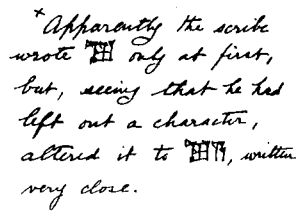 × Apparently the scribe
wrote only at first,
but, seeing that he had
left out a character,
altered it to , written
very close.